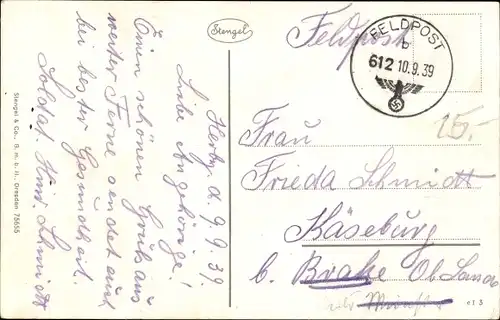 Stengel
Feldpost
FELDPOST
b
612 10.9.39
d. 9.9.39.
Liebe Angehörige!
Einen schönen Gruß aus
weiter Ferne sendet euch
bei bester Gesundheit.
Soldat. Schmidt
Stengel & Co., G. m. b. H., Dresden 75655
15,-
Frau
Frieda Schmidt
Käseburg
b. Brake
e13